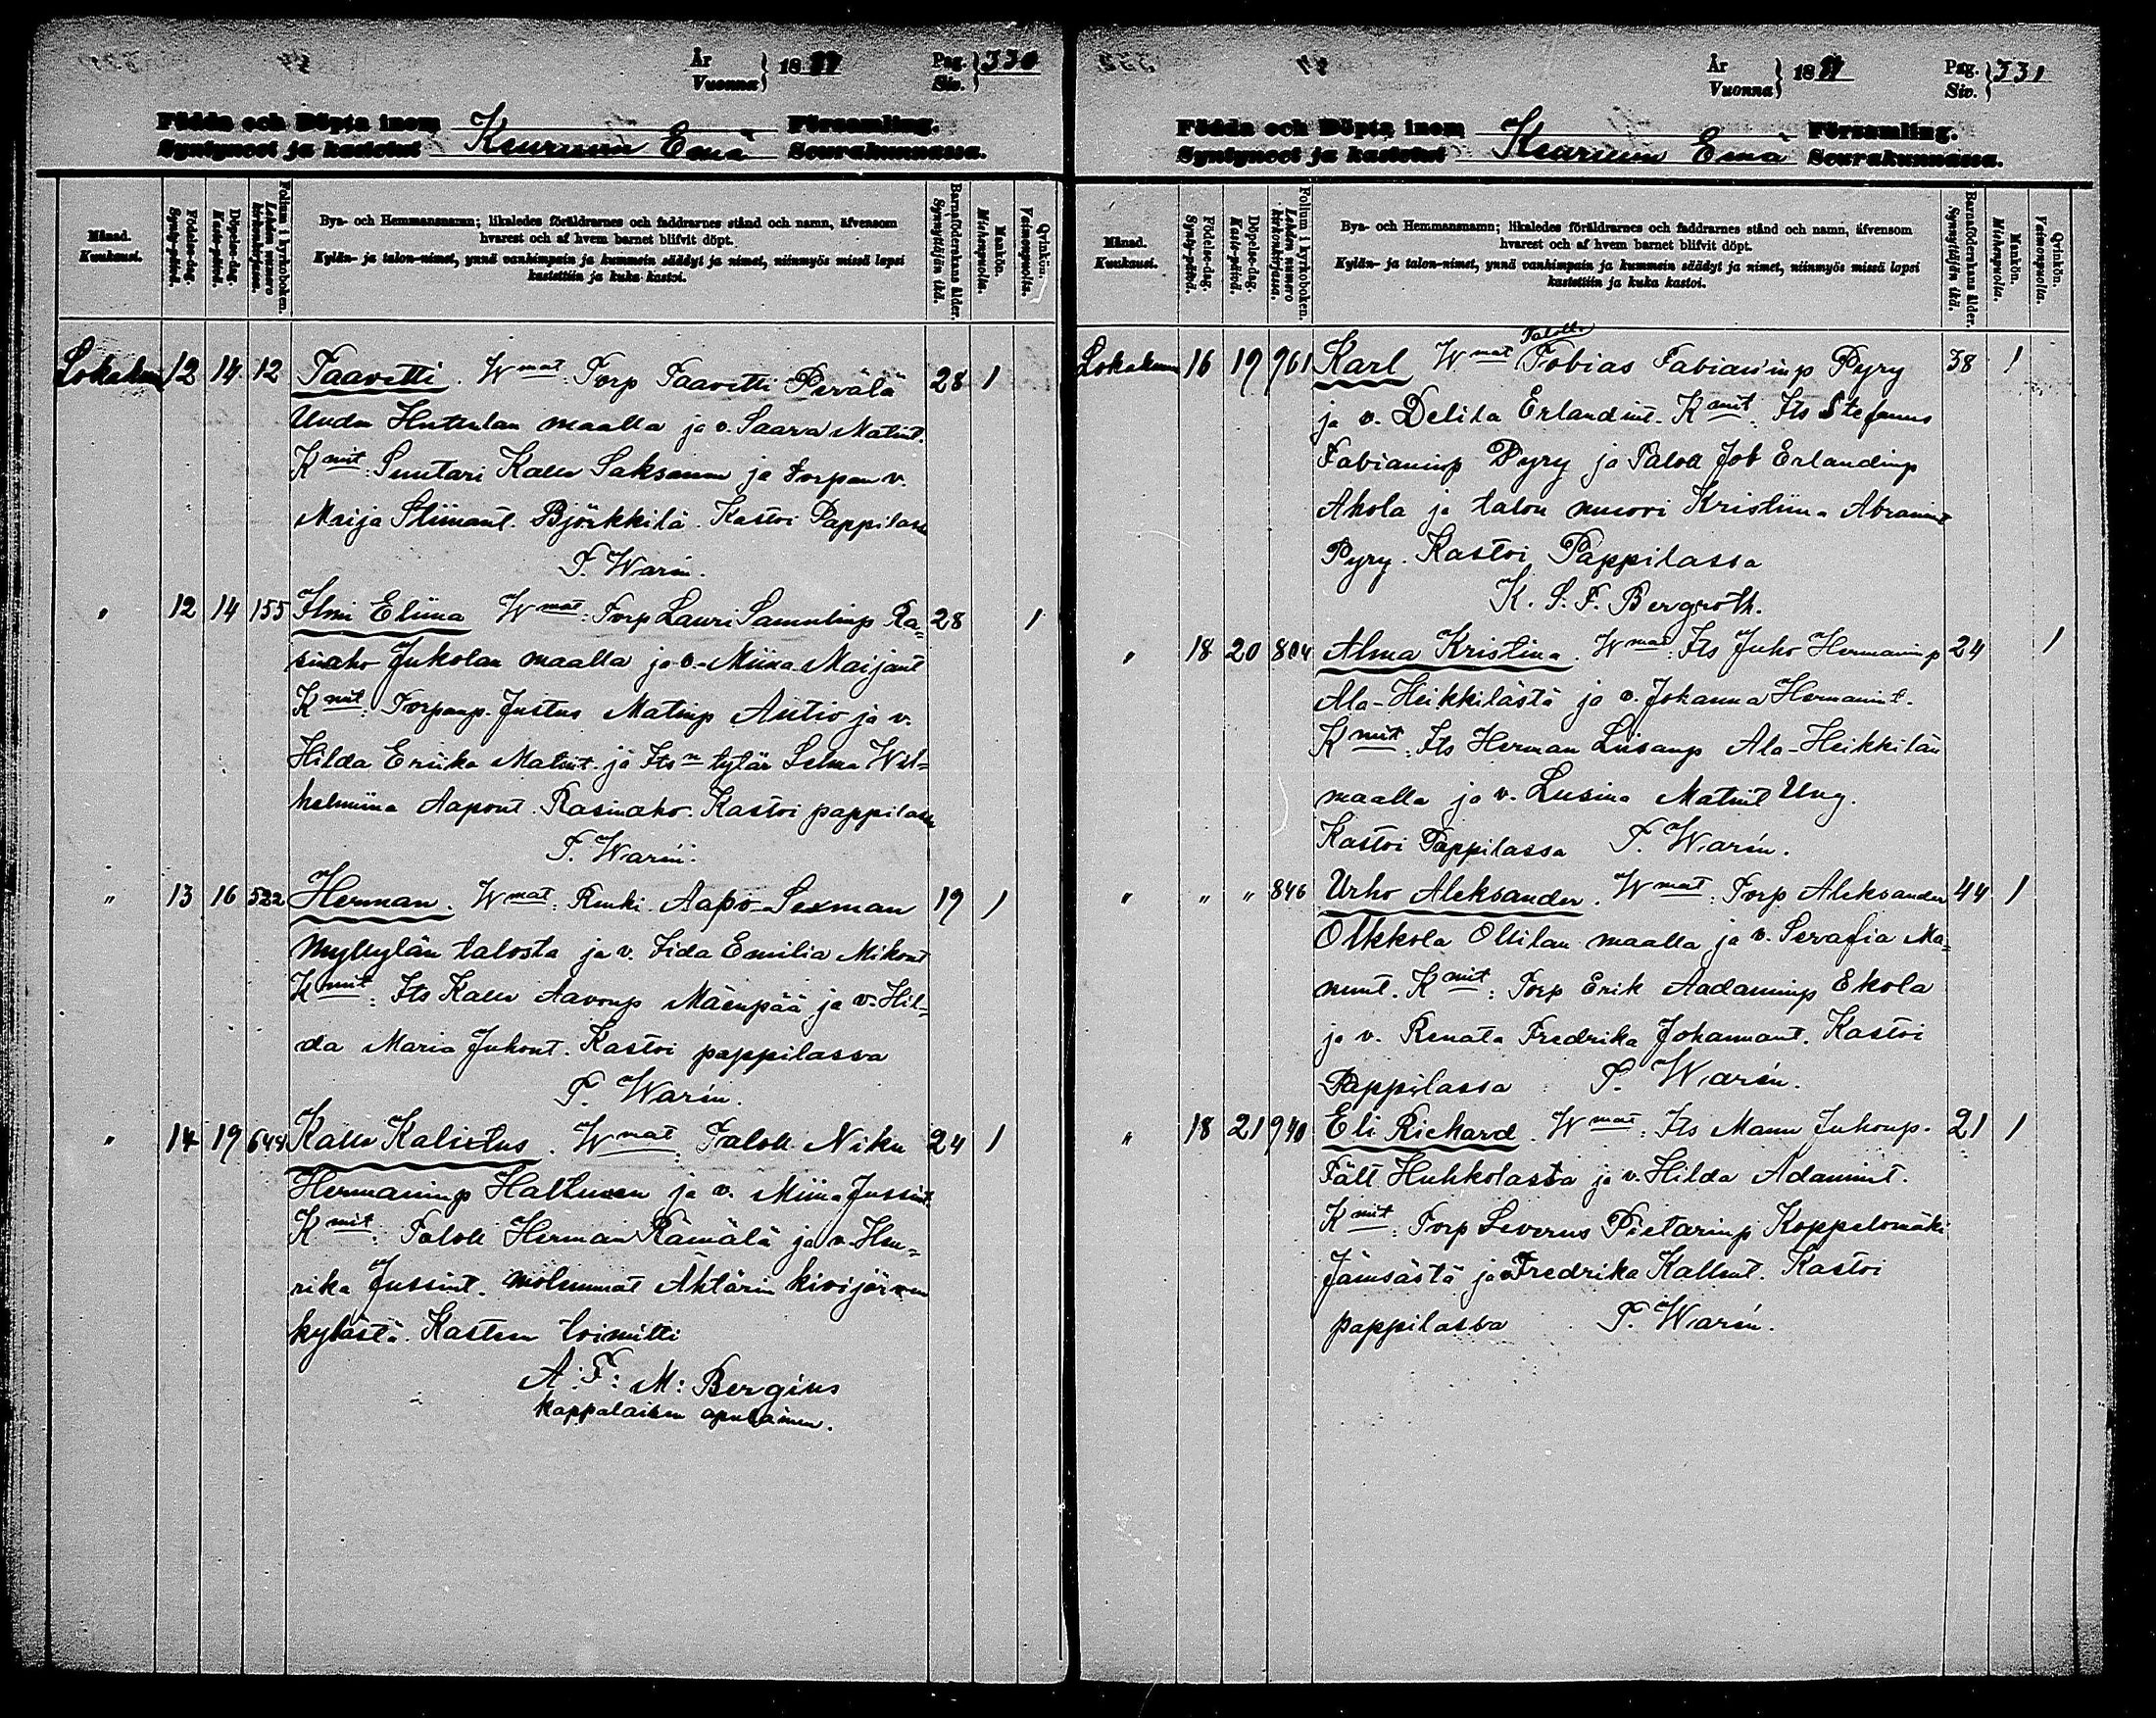 År
Vuonna } 18
Pag.
Siv. } 330
Födda och Döpta inom
Syntyneet ja kastetut
Keuruun Emä
Församling.
Seurakunnassa.
Månad.
Kuukausi.
Födelse-dag.
Synty-päivä.
Döpelse-dag.
Kaste-päivä.
Folium i kyrkoboken.
Lehden numero
kirkonkirjassa.
Bya- och Hemmansnamn; likaledes föräldrarnes och faddrarnes stånd och namn, äfvensom
hvarest och af hvem barnet blifvit döpt.
Kylän- ja talon-nimet, ynnä vanhimpain ja kummein säädyt ja nimet, niinmyös missä lapsi
kastettiin ja kuka kastoi.
Barnaföderskans ålder.
Synnyttäjän ikä.
Mankön.
Miehenpuolia.
Qvinkön.
Vaimonpuolia.
Lokakuu 12 14 12 Taavetti. Wmat: Torp Taavetti Perälä 28 1
Uuden Huttulan maalla ja v. Saara Matint.
Kmit: Suutari Kalle Saksman ja torpan v.
Maija Stiinant. Björkkilä. Kastoi Pappilassa
T. Warén.
" 12 14 155 Ilmi Eliina Wmat: Torp Lauri Samulinp Ra= 28 1
sinaho Jukolan maalla ja v. Miina Maijant
Kmit: Torpanp. Justus Matinp Autio ja v.
Hilda Eriika Matint. ja Itsn tytär Selma Wil=
helmiina Aapont. Rasinaho. Kastoi pappilassa
T. Warén.
" 13 16 522 Herman. Wmat: Renki Aapo Sexman 19 1
Myllylän talosta ja v. Iida Emilia Mikont
Kmit: Its Kalle Aaronp Mäenpää ja v. Hil=
da Maria Juhont. Kastoi pappilassa
T. Warén.
" 14 19 648 Kalle Kalistus. Wmat: Taloll Niku 24 1
Hermaninp Haltunen ja v. Miina Jussint.
Kmit: Taloll Herman Rämälä ja v. Hen=
rika Jussint. molemmat Ähtärin kivijärven
kylästä. Kasteen toimitti
A: F: M: Bergius
kappalaisen apulainen.
År
Vuonna } 18
Pag.
Siv. } 331
Födda och Döpta inom
Syntyneet ja kastetut
Keuruun Emä
Församling.
Seurakunnassa.
Månad.
Kuukausi.
Födelse-dag.
Synty-päivä.
Döpelse-dag.
Kaste-päivä.
Folium i kyrkoboken.
Lehden numero
kirkonkirjassa.
Bya- och Hemmansnamn; likaledes föräldrarnes och faddrarnes stånd och namn, äfvensom
hvarest och af hvem barnet blifvit döpt.
Kylän- ja talon-nimet, ynnä vanhimpain ja kummein säädyt ja nimet, niinmyös missä lapsi
kastettiin ja kuka kastoi.
Barnaföderskans ålder.
Synnyttäjän ikä.
Mankön.
Miehenpuolia.
Qvinkön.
Vaimonpuolia.
Taloll.
Lokakuu 16 19 961 Karl Wmat Tobias Fabianinp Pyry 38 1
ja v. Delila Erlandint. Kmit. Its Stefanus
Fabianinp Pyry ja Taloll Job Erlandinp
Ahola ja talon nuori Kristiina Abramint
Pyry. Kastoi Pappilassa
K. S. F. Bergroth.
" 18 20 804 Alma Kristina. Wmat: Its Juho Hermaninp 24 1
Ala-Heikkilästä ja v. Johanna Hermanint.
Kmit: Its Herman Liisanp Ala-Heikkilän
maalla ja v. Lusina Matint Ung.
Kastoi Pappilassa T. Warén.
" " " 846 Urho Aleksander. Wmat: Torp Aleksander 44 1
Olkkola Ollilan maalla ja v. Serafia Ma=
nunt. Kmit: Torp Erik Aadaminp Ekola
ja v. Renata Fredrika Johannant. Kastoi
Pappilassa T. Warén.
" 18 21 940 Eli Richard. Wmat: Its Manu Juhonp. 21 1
Fält Huhkolasta ja v. Hilda Adamint.
Kmit: Torp Severus Pietarinp Koppelomäki
Jämsästä ja v. Fredrika Kallent. Kastoi
pappilassa T. Warén.